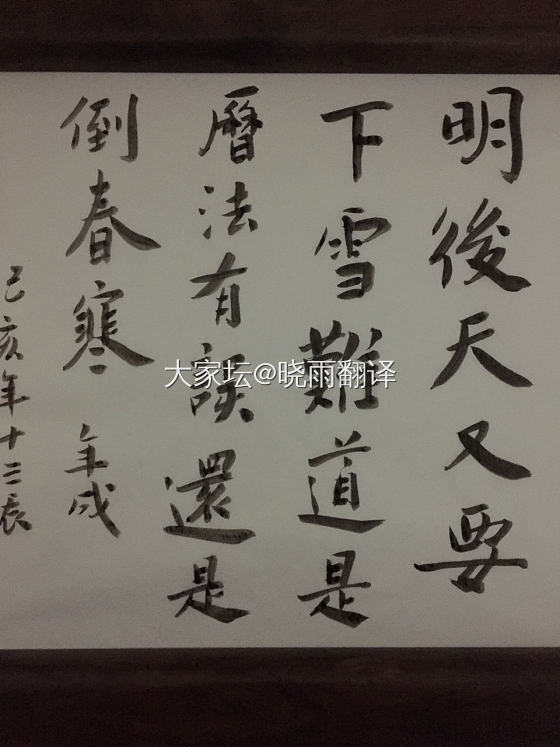 明後天又要
下雪難道是
曆法有誤還是
倒春寒 年成
己亥年十三辰
大家坛@晓雨翻译